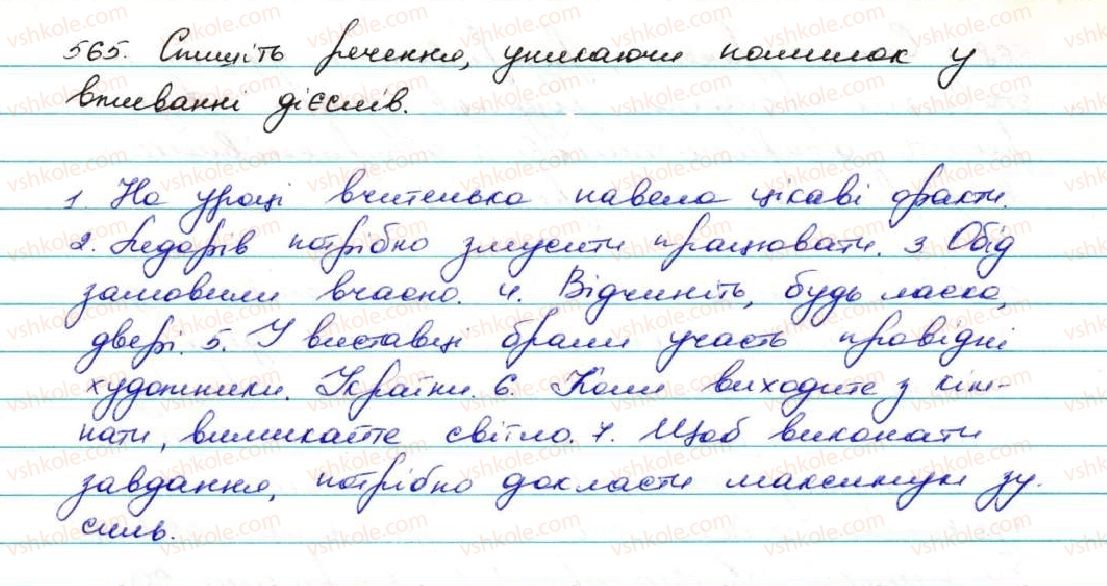 565. Спишіть речення, уникаючи помилок у
вживанні дієслів.
1. На уроці вчителька навела цікаві факти.
2. Ледарів потрібно змусити працювати. 3 Обід
замовили вчасно. 4. Відчиніть, будь ласка,
двері. 5. У виставці брали участь провідні
художники України. 6. Коли виходите з кім-
нати, вимикайте світло. 7. Щоб виконати
завдання, потрібно докласти максимум зу-
силь.